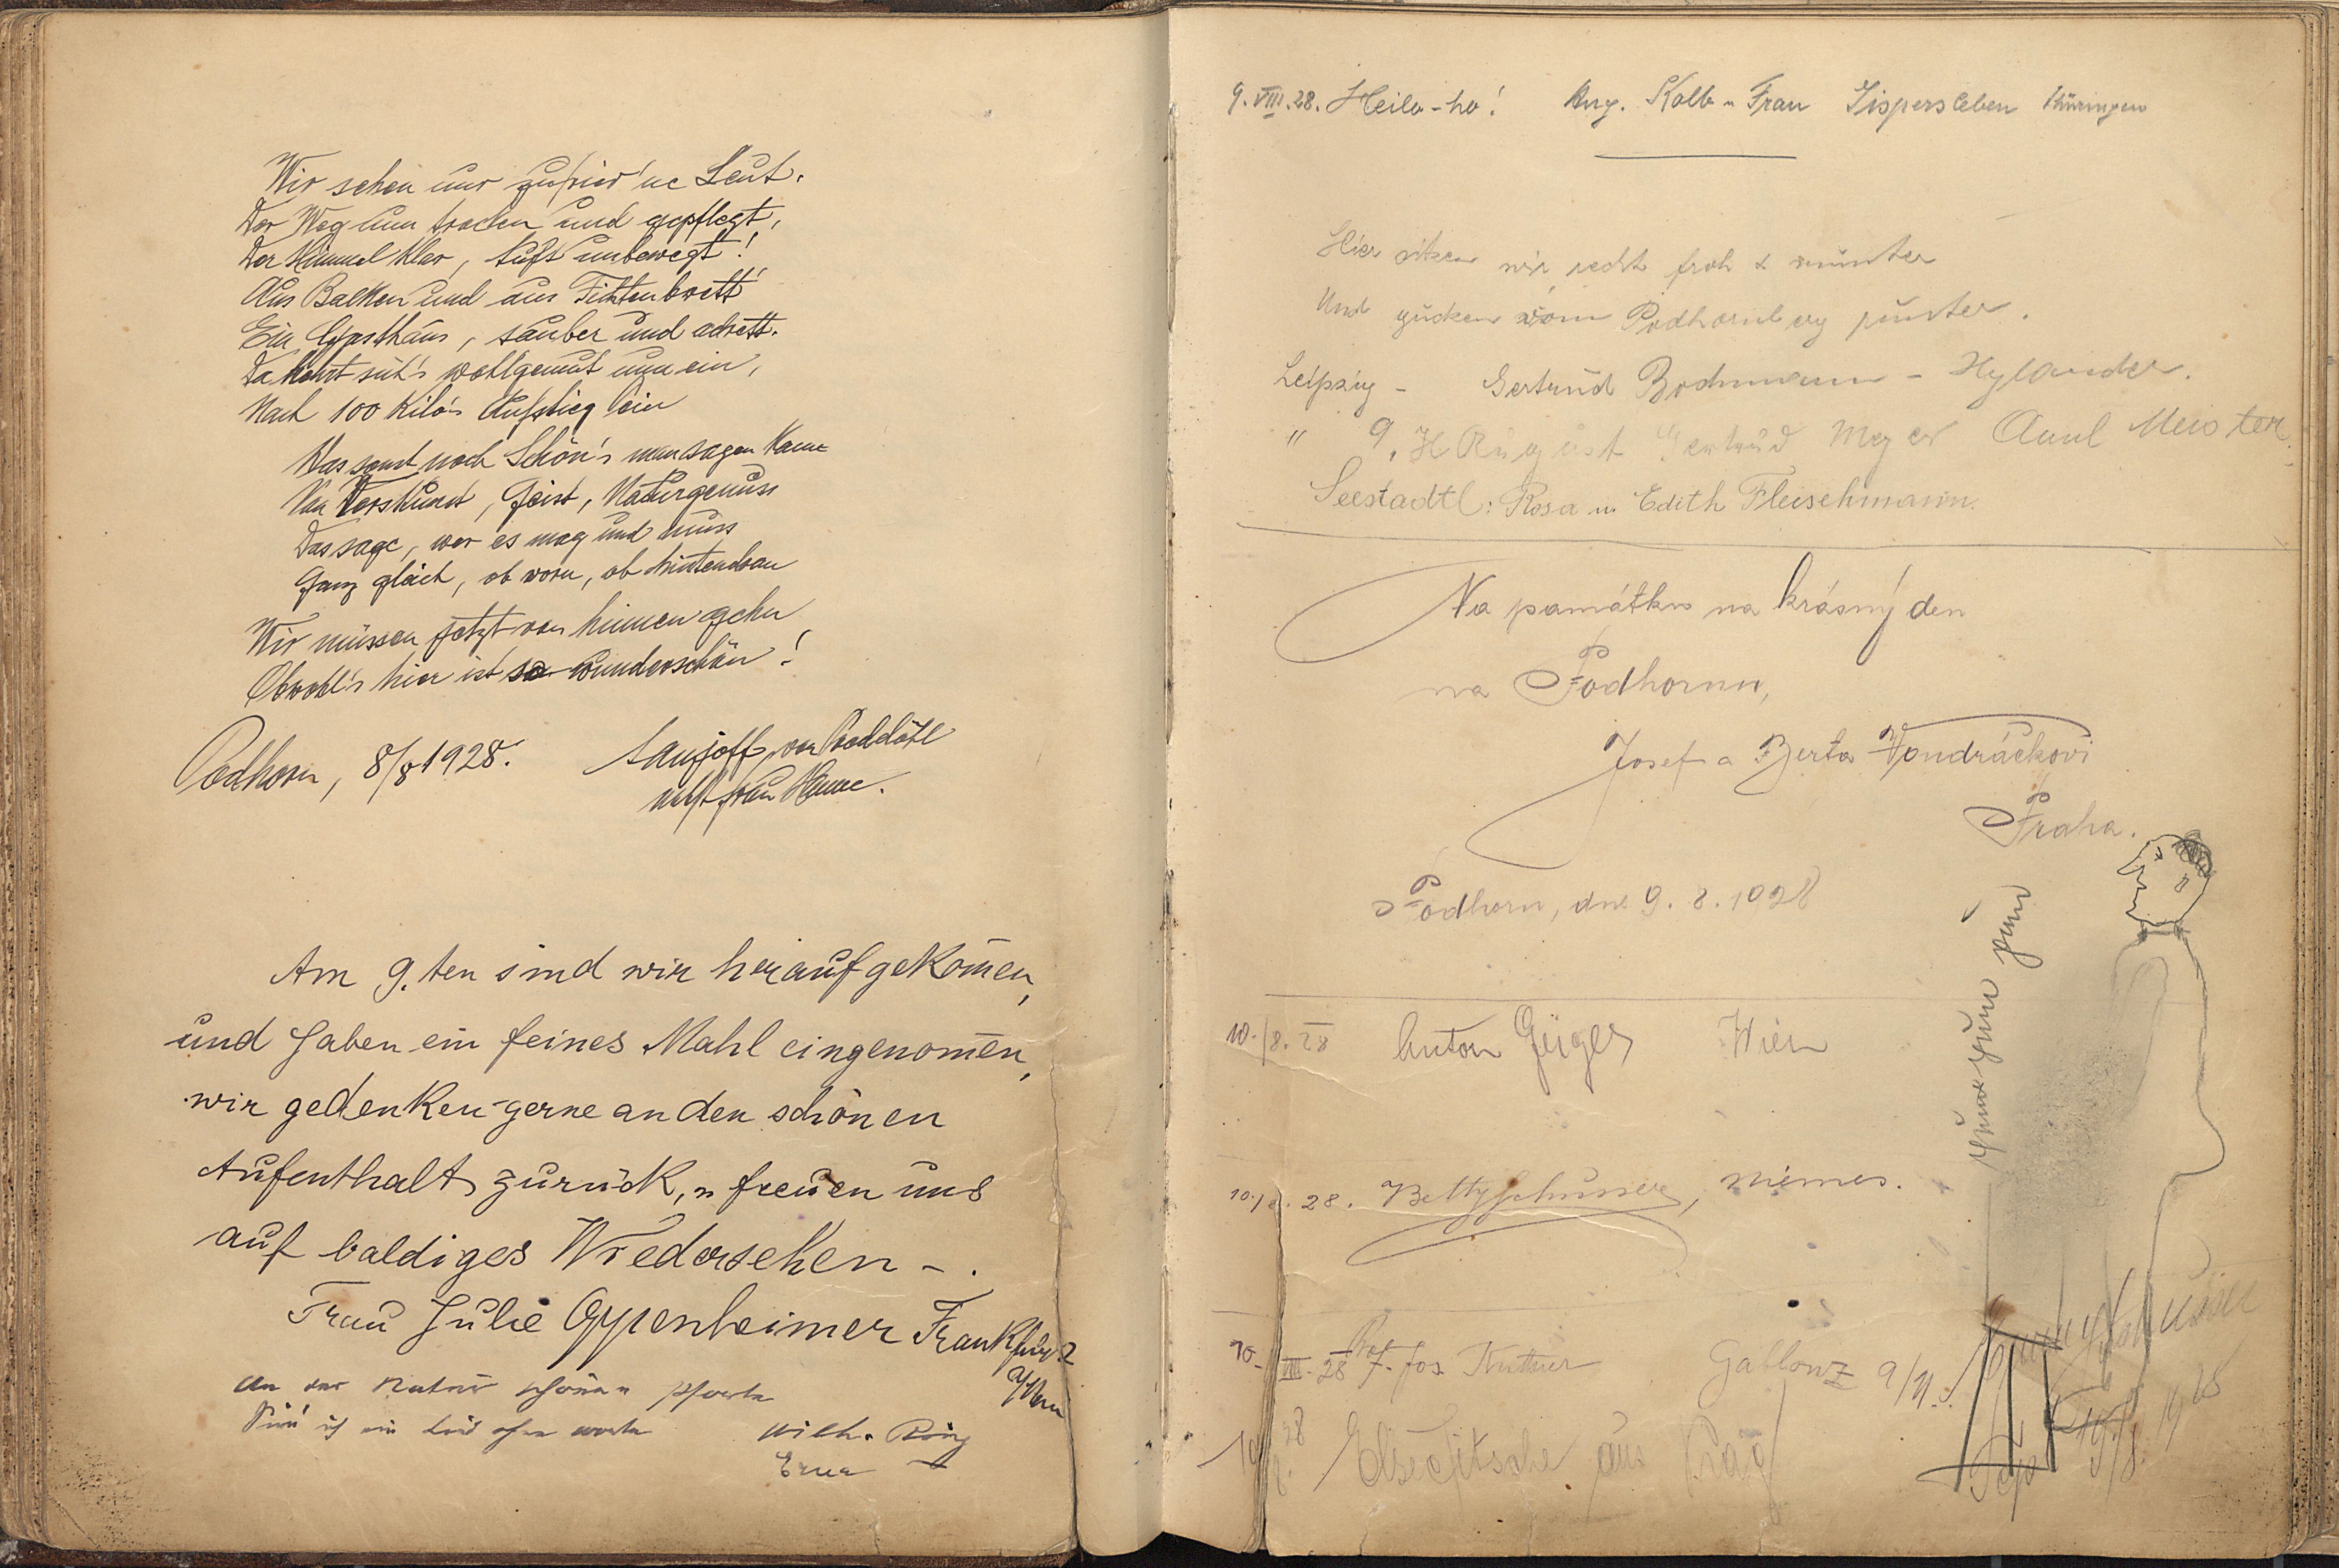 Wir sehen nur zufried'ne Leut.
Der Weg nun trocken und gepflegt,
Der Himmel klar, Luft unbewegt!
Aus Balken und aus Fichtenbrett
Ein Gasthaus, sauber und adrett.
Da kehrt sich's wohlgemut nun ein,
Nach 100 Kilo's Aufstieg
Was sonst noch Schön's man sagen kann
Von Verskunst, Geist, Naturgenuss
Das sage, wer es mag und muss
Ganz gleich, ob vorn, ob hintendran
Wir müssen jetzt von hinnen gehn
Obwohl's hier ist so wunderschön!
Podhorn, 8/8 1928.
nebst Frau
Am 9.ten sind wir heraufgekom̄en,
und haben ein feines Mahl eingenom̄en,
wir gedenken gerne an den schönen
Aufenthalt zurück, u freuen uns
auf baldiges Wiedersehen - .
Frau Julie Oppenheimer Frankfurt
An der Natur schönen Pforte
ich ein Lied ohne Worte
Wilh. Ring
Erna
9.VIII.28. Heila-ho! Aug. Kolb u Frau Tispersleben Thüringen
Hier sitzen wir recht froh & munter
Und gucken vom Podhornberg runter.
Leipzig - Gertrud Bodmann - Hylander.
" 9. August Gertrud Meyer Meister
Seestadtl: Rosa u. Edith Fleischmann.
Na památku na krásný den
na Podhornu,
Josef a Berta Vondráčkovi
Praha.
Podhorn, dne 9. 8. 1928
10./8. 28 Anton Geiger Wien
10./8. 28. Betty Schusser, Niemes.
10. VIII. 28 Prof. Jos. Gablonz a/N.
28 aus Prag
Tepl 19/8. 1928